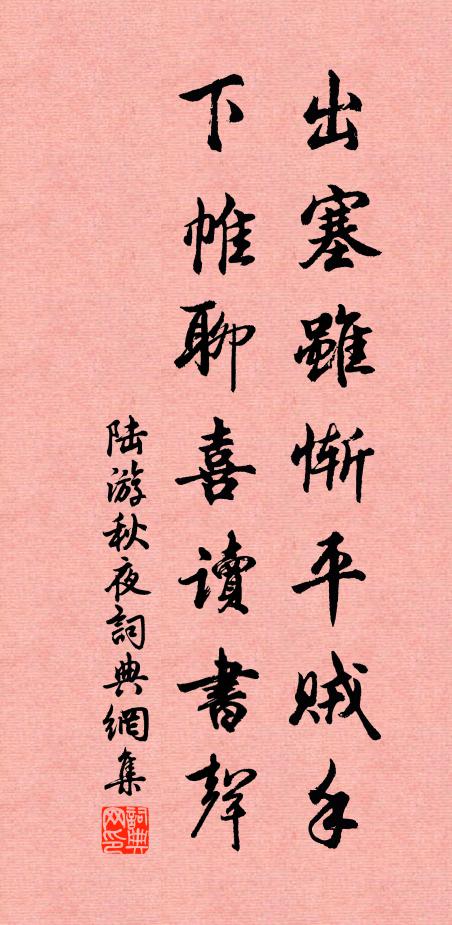 出塞雖慚平賊手
下帷聊喜讀書聲
陆游秋夜詞典網集
詞典网印